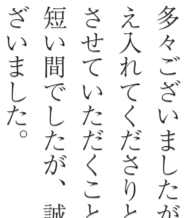 多々ございましたが
え入れてくださりと
させていただくこと
短い間でしたが、誠
ざいました。